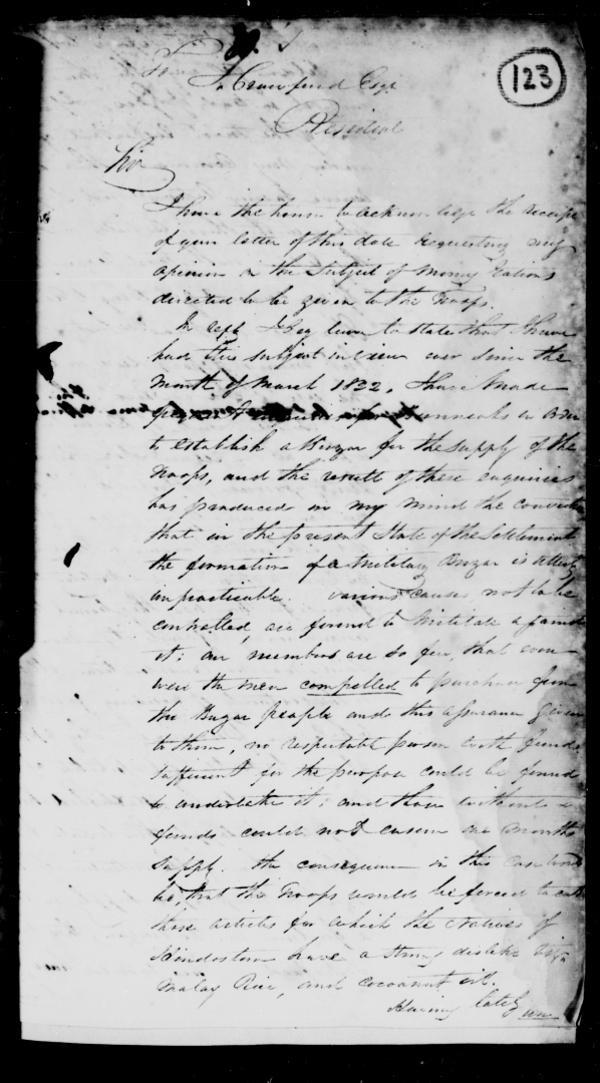 123
To
J. Crawfurd Esqr
Resident
Sir
I have the honor to acknowledge the receipt
of your letter of this date requesting my
opinion on the subject of Money Rations
directed to be given to the Troops.
In reply I beg leave to state that I have
had this subject in view ever since the
Month of March 1822, I have made
in order
to establish a Bazar for the supply of the
Troops, and the result of these enquiries
has produced in my mind the conviction
that in the present State of the Settlement
the formation of a Military Bazar is utterly
impracticable. Various causes not to be
controlled, are found to Militate against
it: our numbers are so few, that even
were the men compelled to purchase from
the Bazar people and this assurance given
to them, no respectable person with funds
sufficient for the purpose could be found
to undertake it: and those without
funds could not ensure one months
supply. The consequence in this case would
be, that the Troops would be forced to eat
those articles for which the Natives of
Hindostan have a strong dislike viz.
Malay Rice, and cocoanut oil.
Having lately